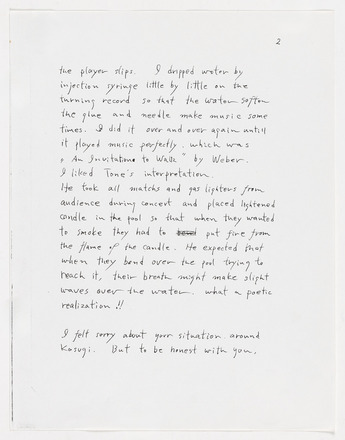 2
the player slips. I dropped water by
injection syringe little by little on the
turning record so that the water soften
the glue and needle make music some
times. I did it over and over again untill
it played music perfectly. which was
"An Invitation to Waltz" by Weber.
I liked Tone's interpretation.
He took all matchs and gas lighters from
audience during concert and placed lightened
candle in the pool so that when they wanted
to smoke they had to put fire from
the flame of the candle. He expected that
when they bend over the pool trying to
reach it, their breath might make slight
waves over the water. what a poetic
realization!!
I felt sorry about your situation around
Kosugi. But to be honest with you,